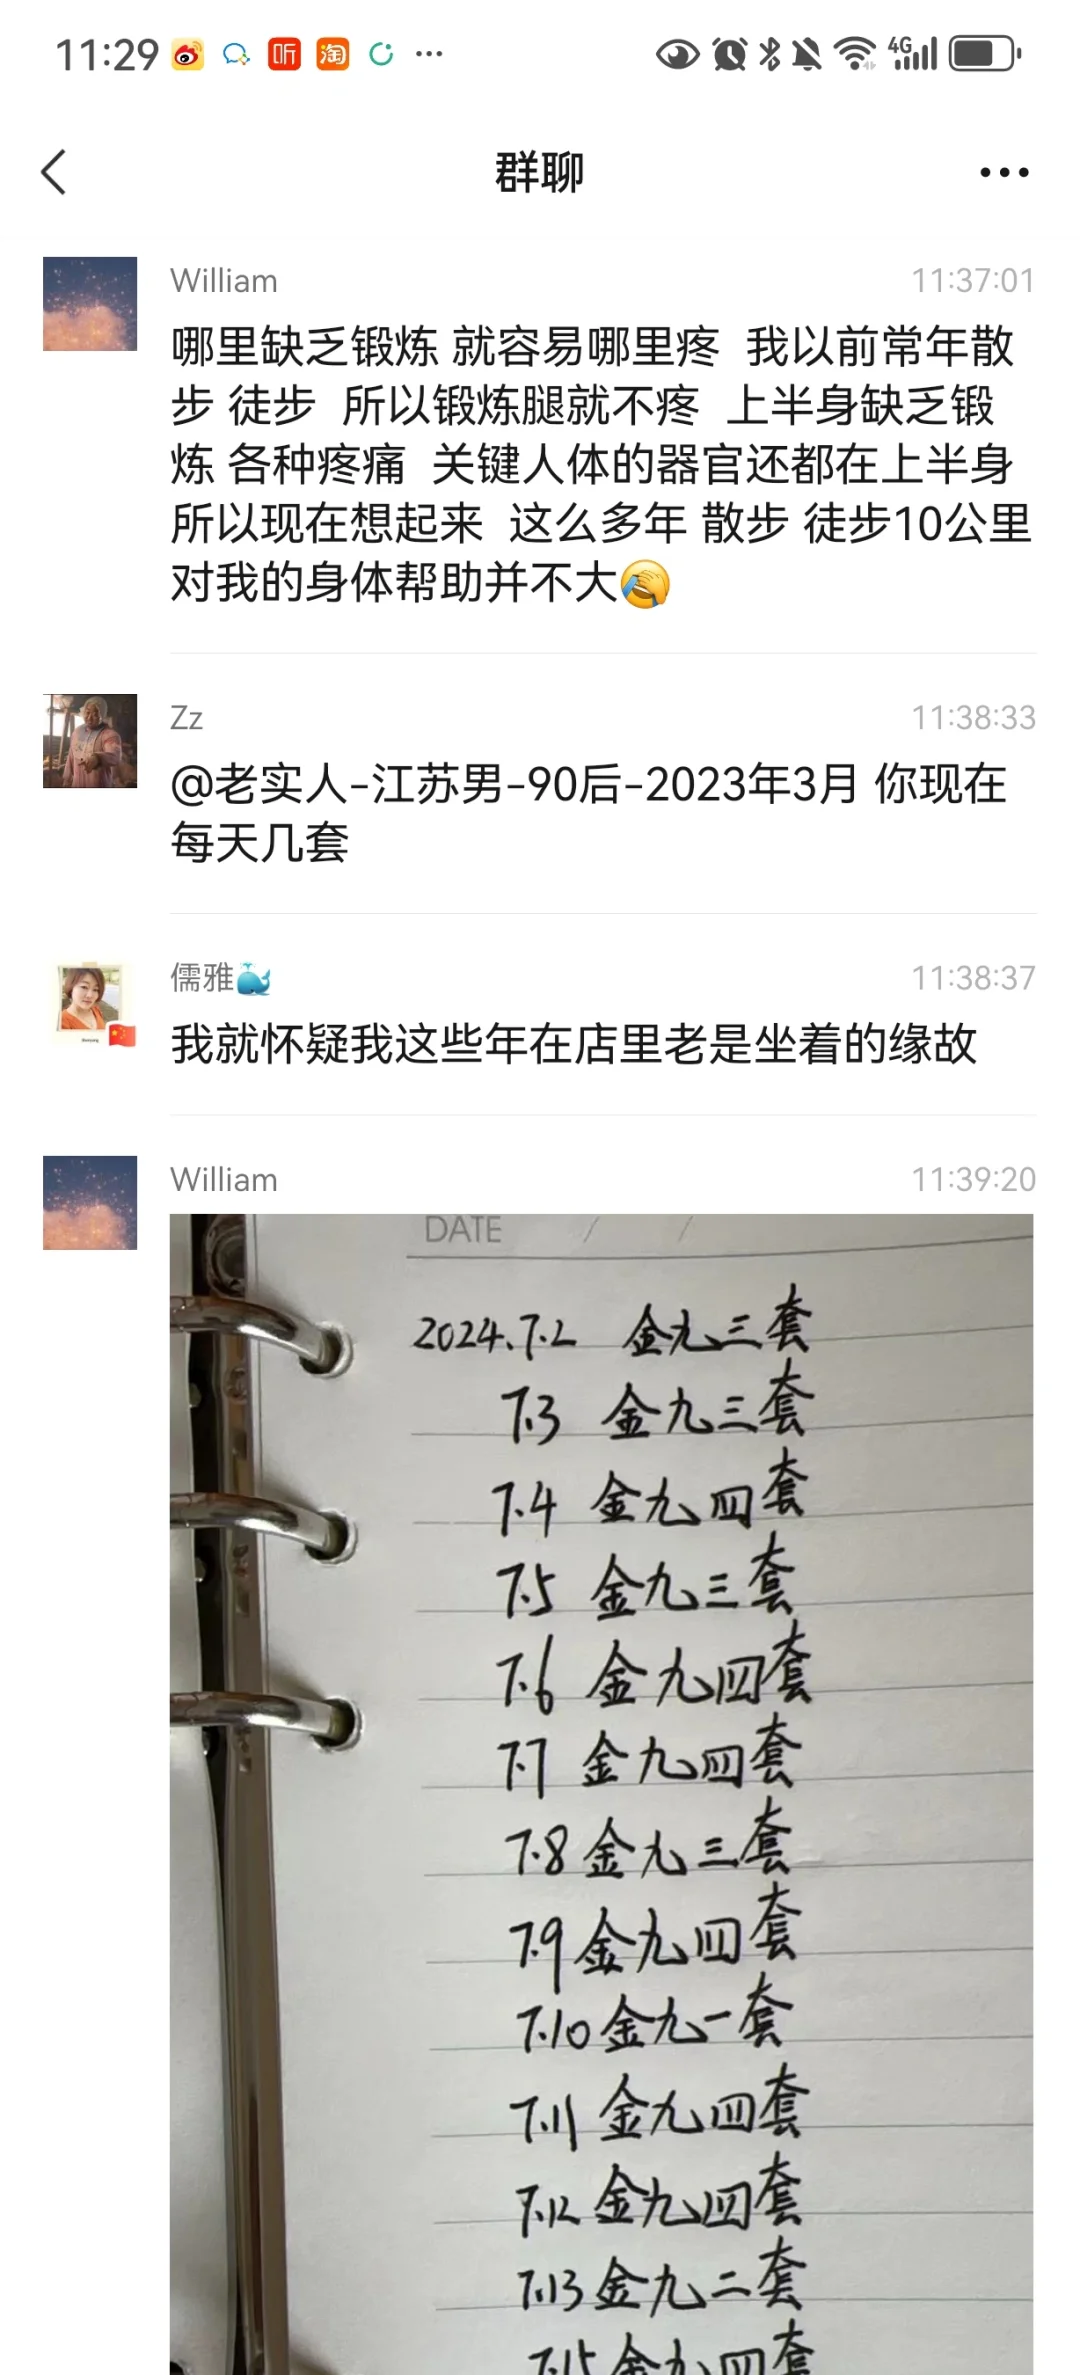 11:29
听
淘
4G
群聊
William 11:37:01
哪里缺乏锻炼 就容易哪里疼 我以前常年散
步 徒步 所以锻炼腿就不疼 上半身缺乏锻
炼 各种疼痛 关键人体的器官还都在上半身
所以现在想起来 这么多年 散步 徒步10公里
对我的身体帮助并不大
Zz 11:38:33
@老实人-江苏男-90后-2023年3月 你现在
每天几套
儒雅 11:38:37
我就怀疑我这些年在店里老是坐着的缘故
William 11:39:20
DATE / /
2024.7.2 金九三套
7.3 金九三套
7.4 金九四套
7.5 金九三套
7.6 金九四套
7.7 金九四套
7.8 金九三套
7.9 金九四套
7.10 金九一套
7.11 金九四套
7.12 金九四套
7.13 金九二套
7.15 金九四套